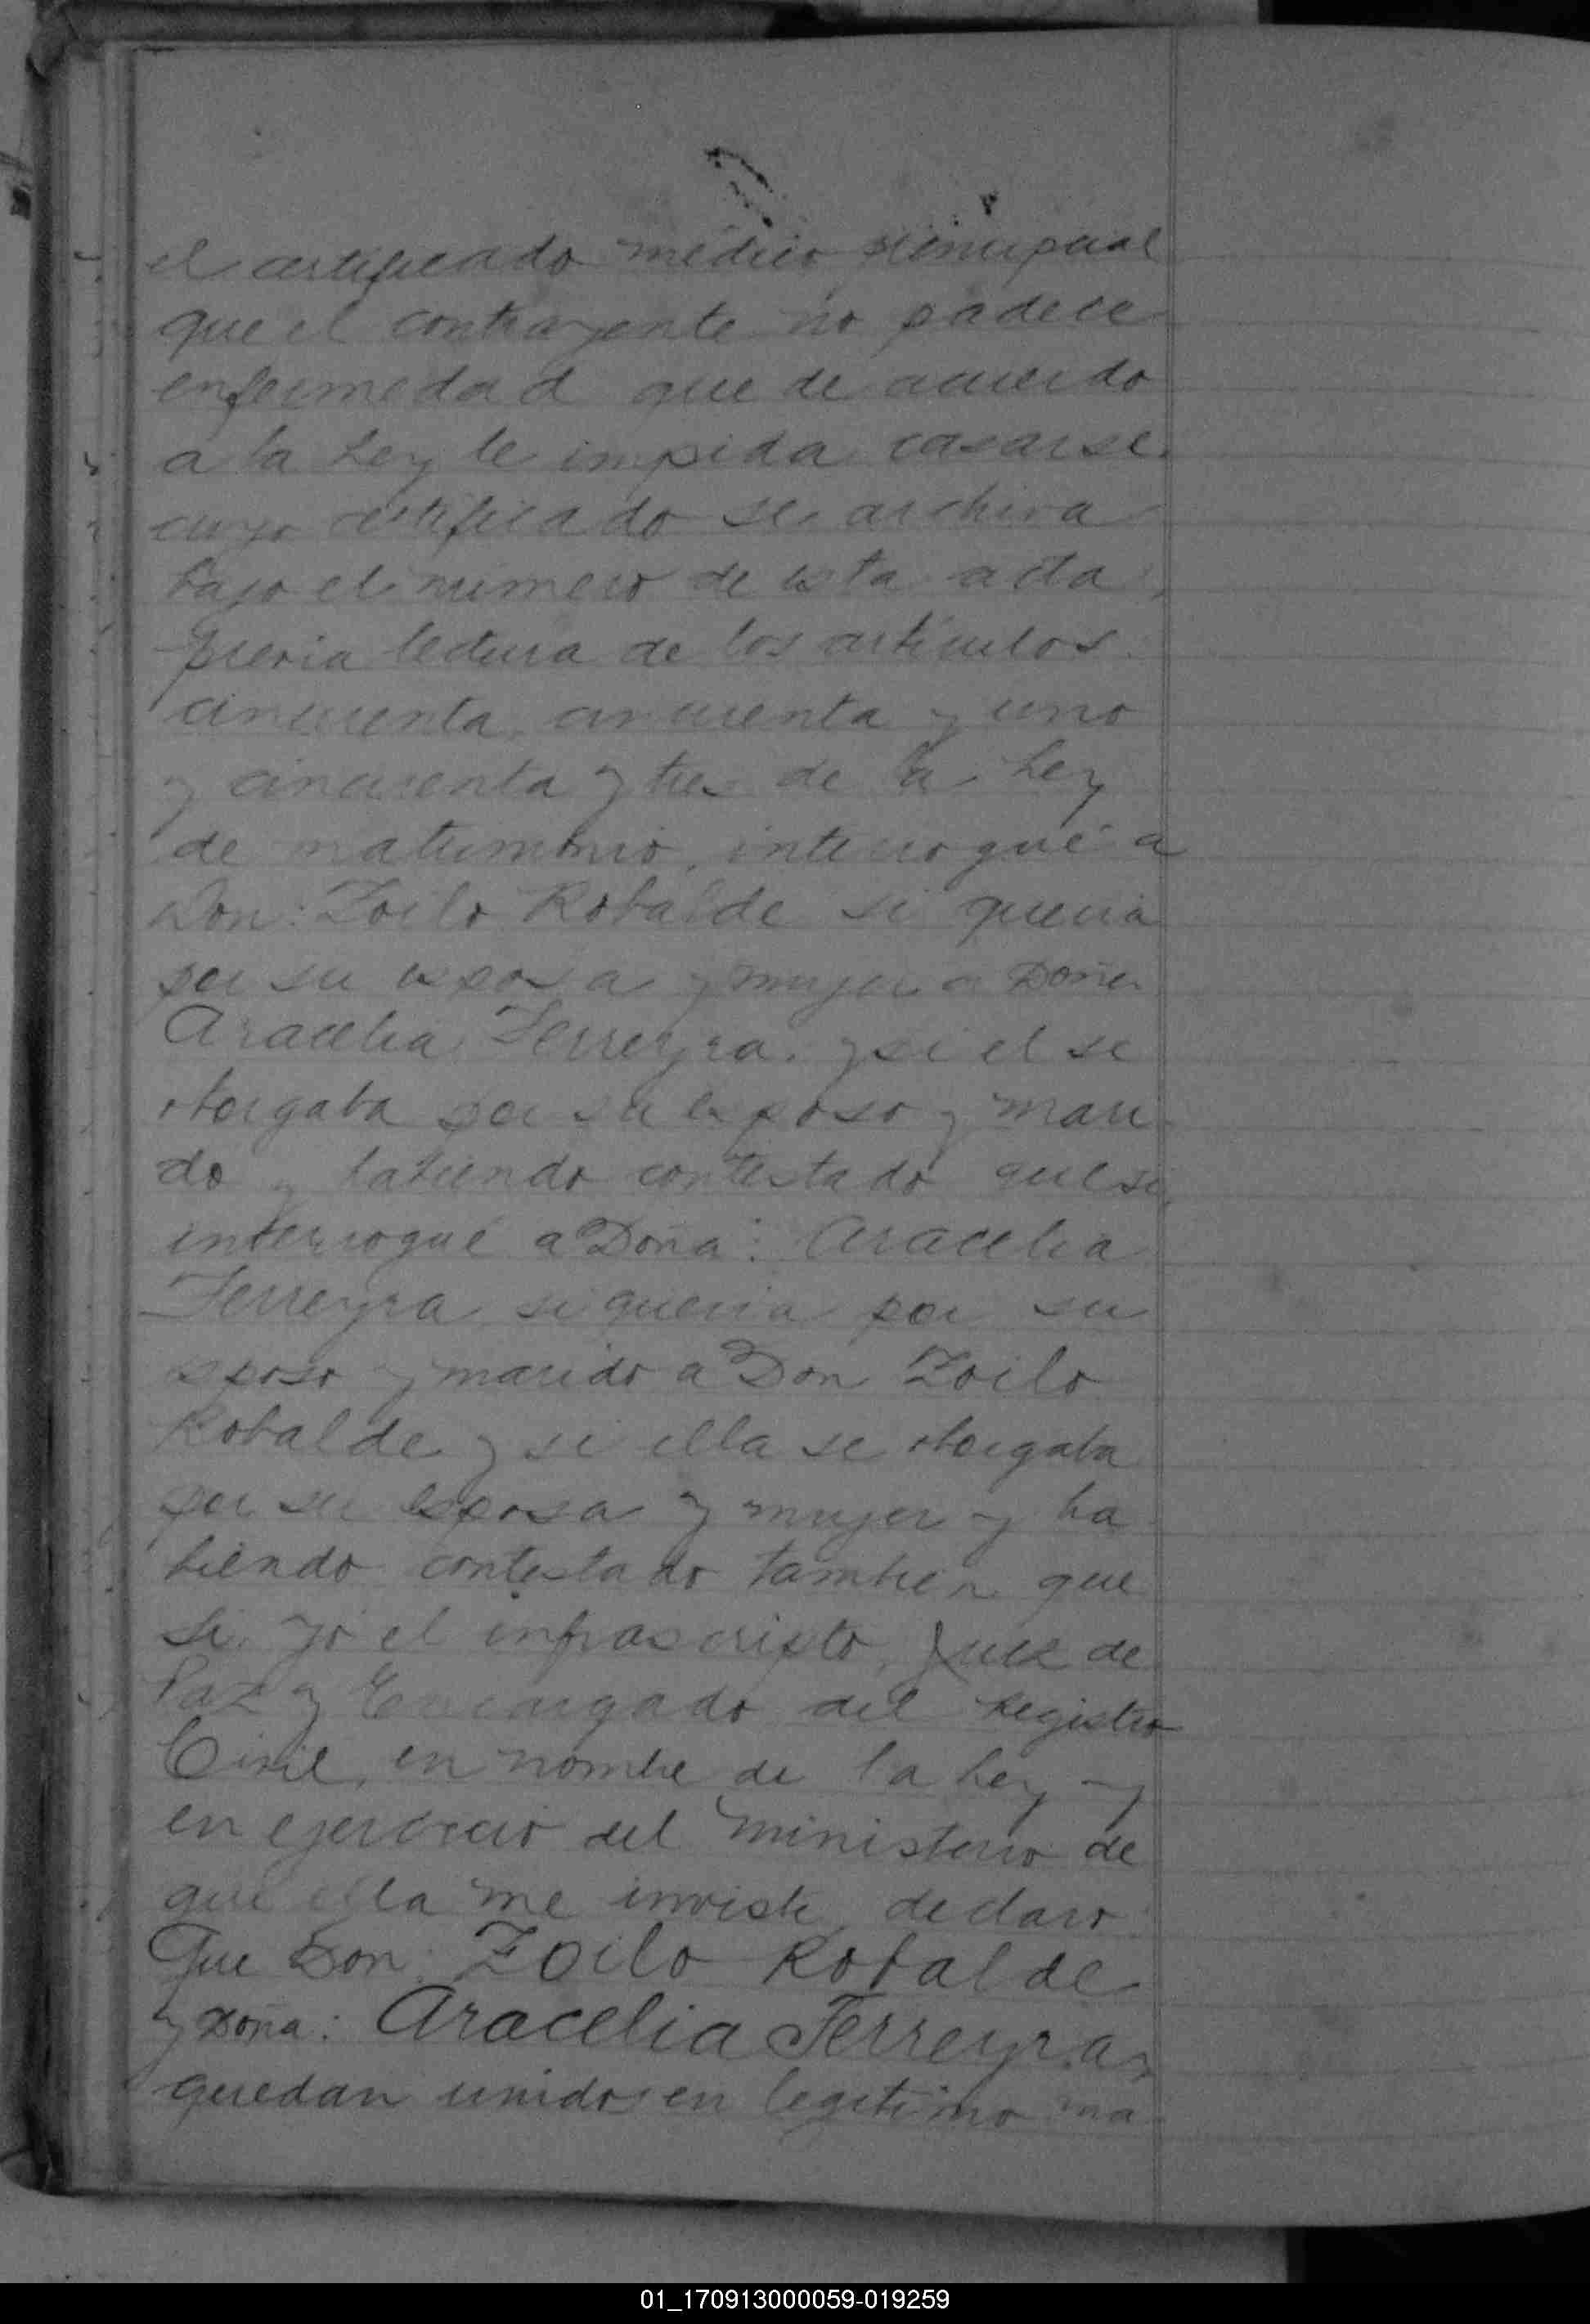 el certificado médico prenupcial
que el contrayente no padece
enfermedad que de acuerdo
a la Ley le impida casarse
cuyo certificado se archiva
bajo el número de esta acta,
previa lectura de los artículos
cincuenta, cincuenta y uno
y cincuenta y tres de la Ley
de matrimonio, interrogué a
Don: Zoilo Robalde si queria
por su esposa y mujer a Doña
Aracelia Ferreyra y si el se
otorgaba por su esposo y mari
do y habiendo contestado que si,
interrogué a Doña: Aracelia
Ferreyra si queria por su
esposo y marido a Don Zoilo
Robalde y si ella se otorgaba
por su esposa y mujer y ha
biendo contestado tambien que
si. Yo el infrascripto, Juez de
Paz y Encargado del Registro
Civil, en nombre de la Ley y
en ejercicio del ministerio de
que ella me inviste, declaro
Que Don: Zoilo Robalde
y Doña: Aracelia Ferreyra,
quedan unidos en legitimo ma
01_170913000059-019259